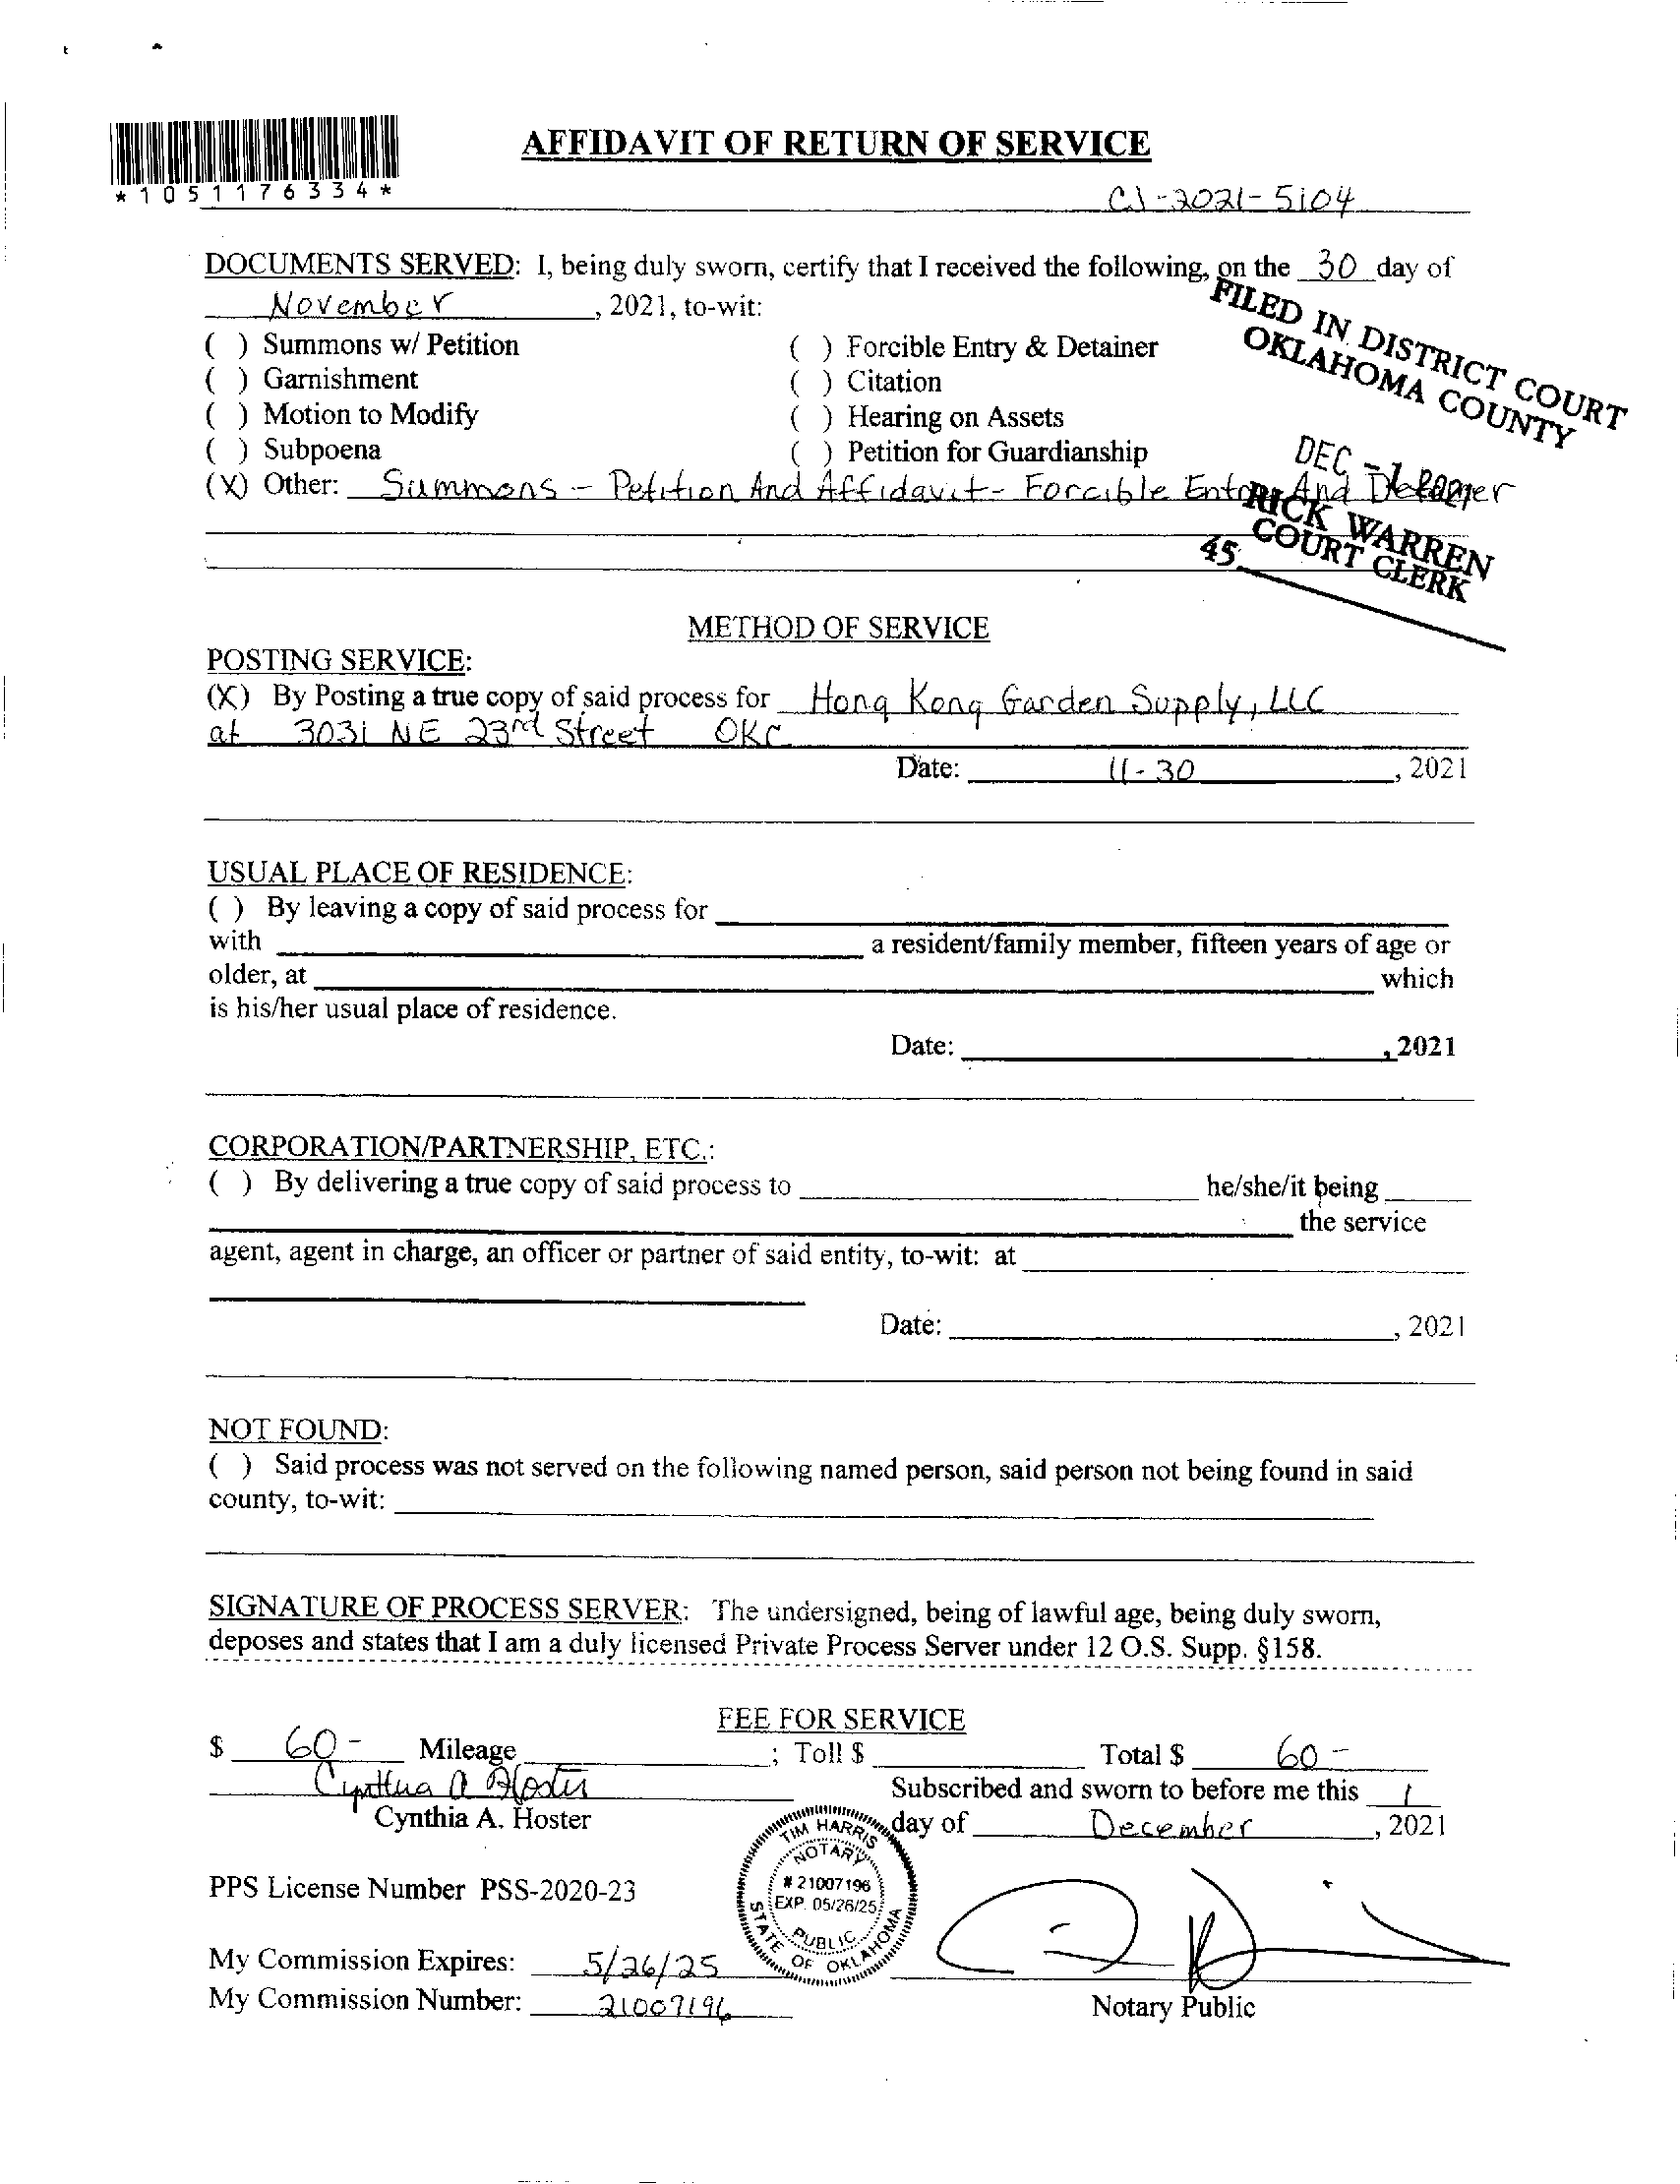 AFFIDAVIT OF RETURN OF SERVICE
*1051176334*
CJ-2021-5104
DOCUMENTS SERVED: I, being duly sworn, certify that I received the following, on the 30 day of
November, 2021, to-wit:
( ) Summons w/ Petition ( ) Forcible Entry & Detainer
( ) Garnishment ( ) Citation
( ) Motion to Modify ( ) Hearing on Assets
( ) Subpoena ( ) Petition for Guardianship
(X) Other: Summons - Petition And Affidavit - Forcible Entry And Detainer
FILED IN DISTRICT COURT
OKLAHOMA COUNTY
DEC -1 2021
RICK WARREN
COURT CLERK
45
METHOD OF SERVICE
POSTING SERVICE:
(X) By Posting a true copy of said process for Hong Kong Garden Supply, LLC
at 3031 NE 23rd Street OKC
Date: 11-30, 2021
USUAL PLACE OF RESIDENCE:
( ) By leaving a copy of said process for
with a resident/family member, fifteen years of age or
older, at which
is his/her usual place of residence.
Date: , 2021
CORPORATION/PARTNERSHIP, ETC.:
( ) By delivering a true copy of said process to he/she/it being
the service
agent, agent in charge, an officer or partner of said entity, to-wit: at
Date: , 2021
NOT FOUND:
( ) Said process was not served on the following named person, said person not being found in said
county, to-wit:
SIGNATURE OF PROCESS SERVER: The undersigned, being of lawful age, being duly sworn,
deposes and states that I am a duly licensed Private Process Server under 12 O.S. Supp. §158.
FEE FOR SERVICE
$ 60- Mileage ; Toll $ Total $ 60-
Cynthia A Hoster Subscribed and sworn to before me this 1
Cynthia A. Hoster day of December, 2021
TIM HARRIS
NOTARY
# 21007196
EXP. 05/26/25
PUBLIC
STATE OF OKLAHOMA
PPS License Number PSS-2020-23
My Commission Expires: 5/26/25
My Commission Number: 21007196 Notary Public